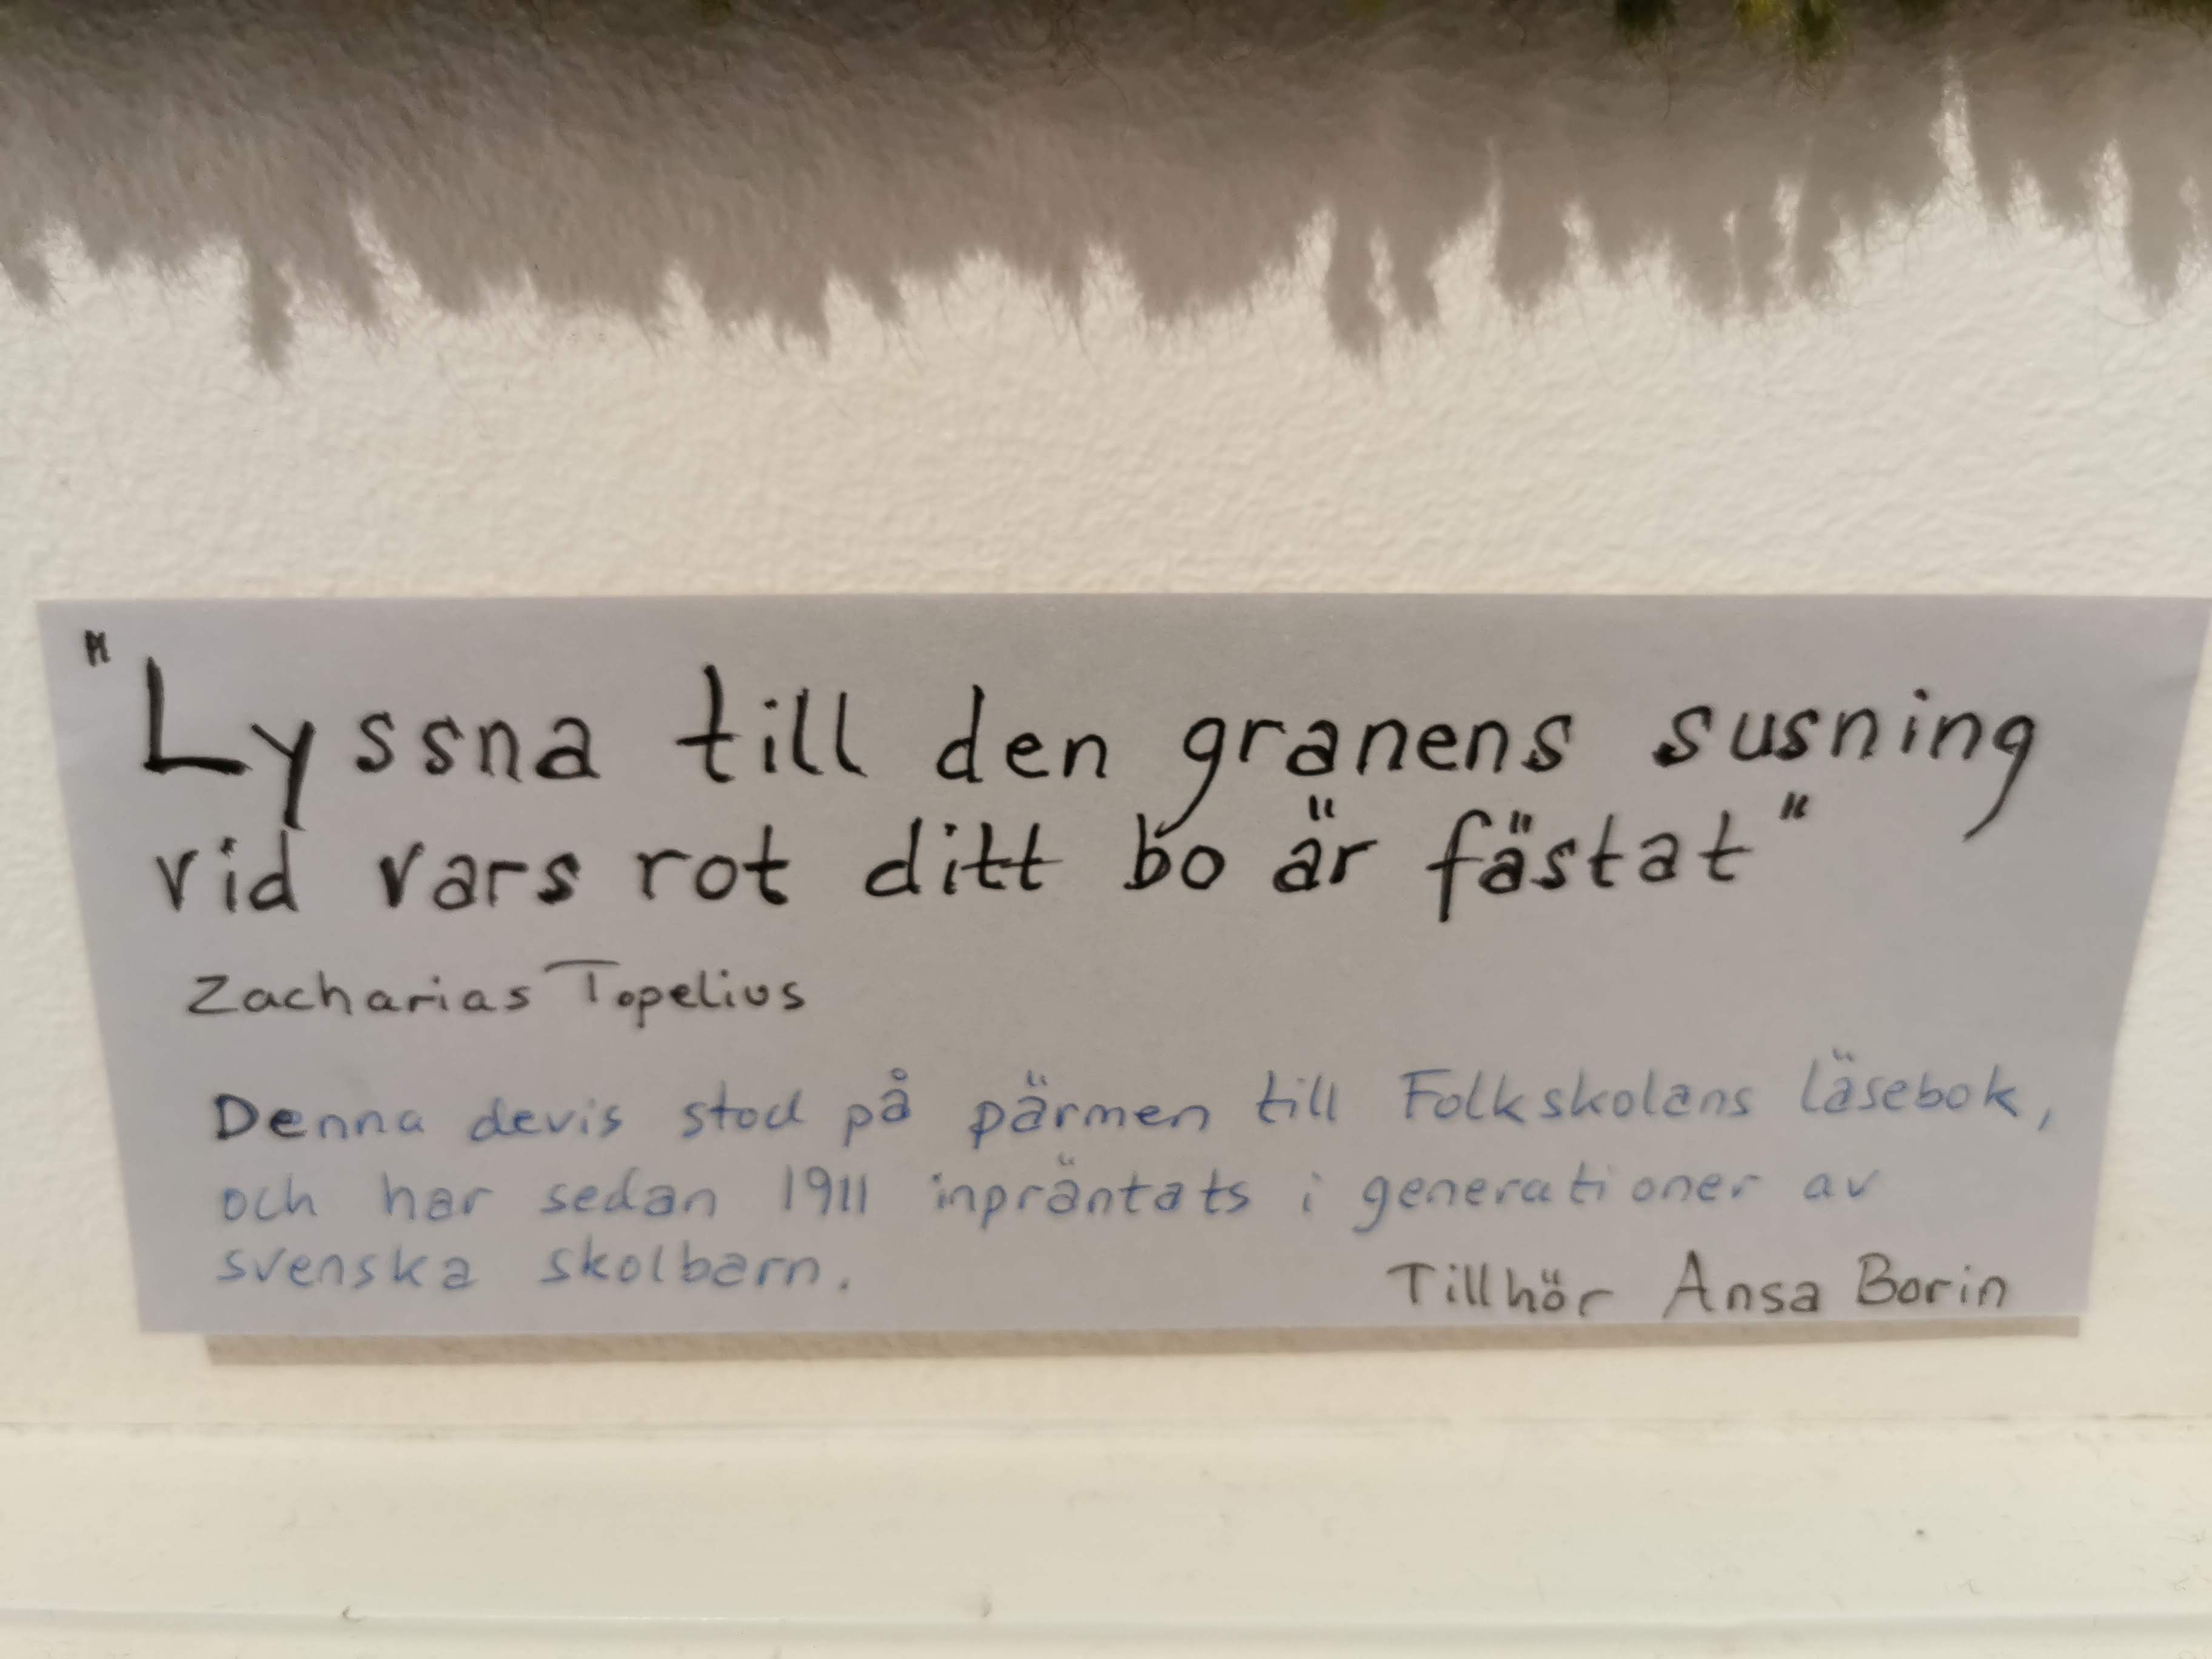 "Lyssna till den granens susning
vid vars rot ditt bo är fästat"
Zacharias Topelius
Denna devis stod på pärmen till Folkskolans läsebok,
och har sedan 1911 inpräntats i generationer av
svenska skolbarn.
Tillhör Ansa Borin